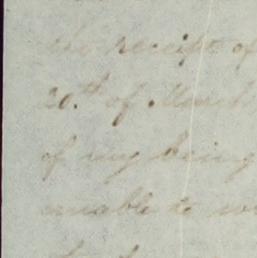 the receipt of
20th of March
of my being
unable to